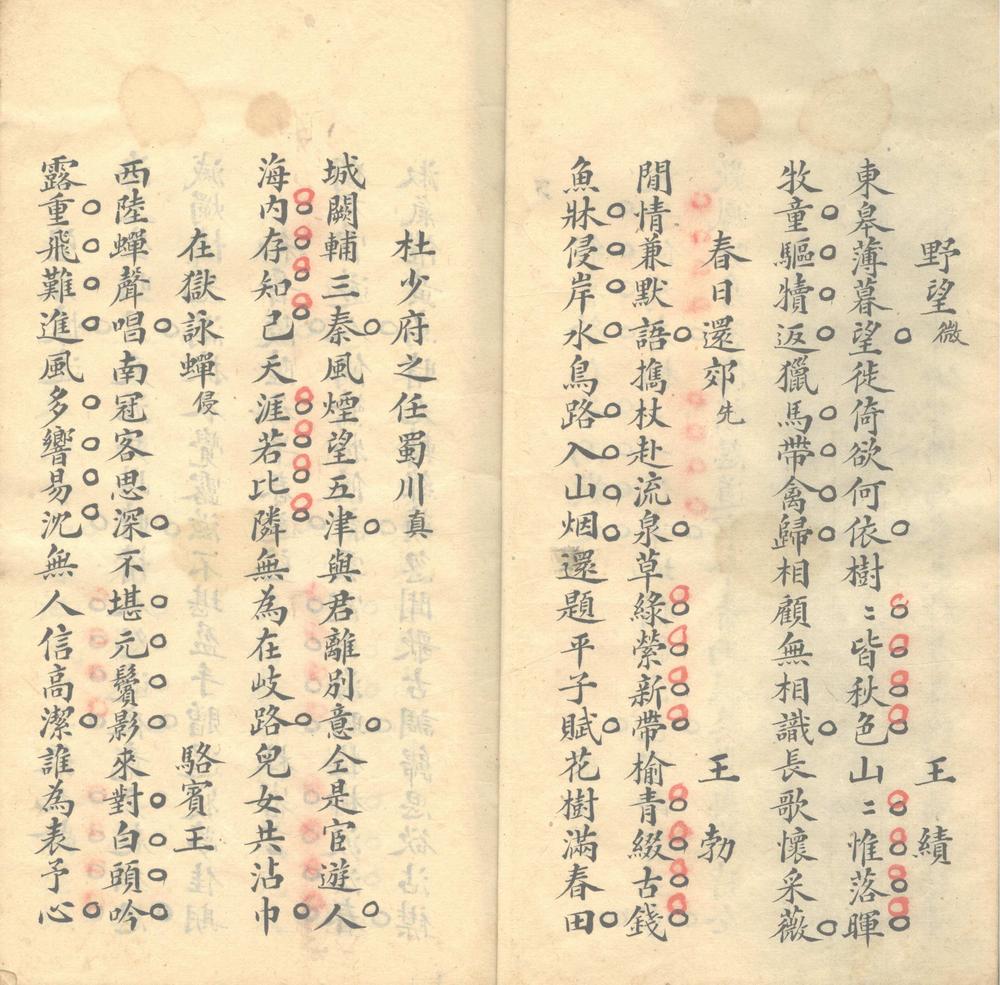 野望微 王績
東皋薄暮望徙倚欲何依樹〻皆秋色山〻惟落暉
牧童驅犢返獵馬帶禽歸相顧無相識長歌懷采薇
春日還郊先 王勃
閒情兼默語攜杖赴流泉草綠縈新帶榆青綴古錢
魚牀侵岸水鳥路入山烟還題平子賦花樹滿春田
杜少府之任蜀川真
城闕輔三秦風煙望五津與君離別意仝是宦遊人
海内存知己天涯若比隣無為在岐路兒女共沾巾
在獄詠蟬侵 駱賓王
西陸蟬聲唱南冠客思深不堪元鬢影來對白頭吟
露重飛難進風多響易沈無人信高潔誰為表予心